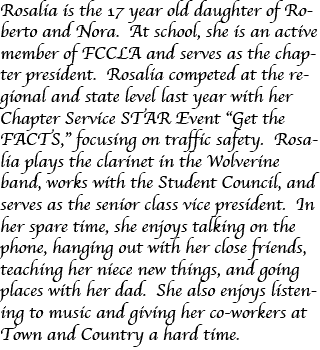 Rosalia is the 17 year old daughter of Ro-
berto and Nora. At school, she is an active
member of FCCLA and serves as the chap-
ter president. Rosalia competed at the re-
gional and state level last year with her
Chapter Service STAR Event “Get the
FACTS,” focusing on traffic safety. Rosa-
lia plays the clarinet in the Wolverine
band, works with the Student Council, and
serves as the senior class vice president. In
her spare time, she enjoys talking on the
phone, hanging out with her close friends,
teaching her niece new things, and going
places with her dad. She also enjoys listen-
ing to music and giving her co-workers at
Town and Country a hard time.